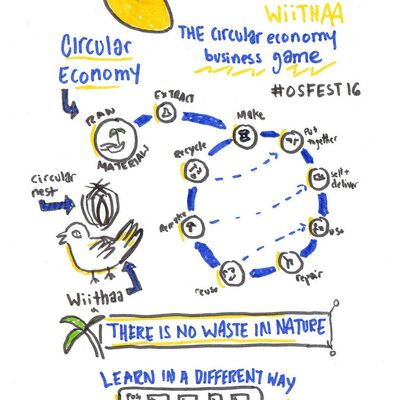 WiiTHAA
THE circular economy
business game
#OSFEST16
Circular
Economy
RAW
MATERIAL
EXTRACT
Make
Put
together
sell+
deliver
use
repair
reuse
Remake
Recycle
circular
nest
Wiithaa
THERE IS NO WASTE IN NATURE
LEARN IN A DIFFERENT WAY